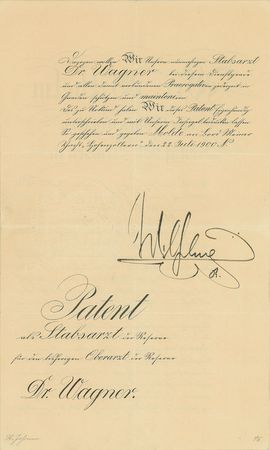 Dagegen wollen Wir Unsern nunmehrigen Stabsarzt
Dr. Wagner bei diesem Dienstgrade
und allen damit verbundenen Praerogativen jederzeit in
Gnaden schützen und maintenieren.
Des zu Urkund haben Wir dieses Patent Eigenhändig
unterschrieben und mit Unserem Insiegel bedrucken lassen.
So geschehen und gegeben Molde an Bord Meiner
Yacht „Hohenzollern“ den 22. Juli 1900.
Wilhelm
R.
Patent
als Stabsarzt der Reserve
für den bisherigen Oberarzt der Reserve
Dr. Wagner.